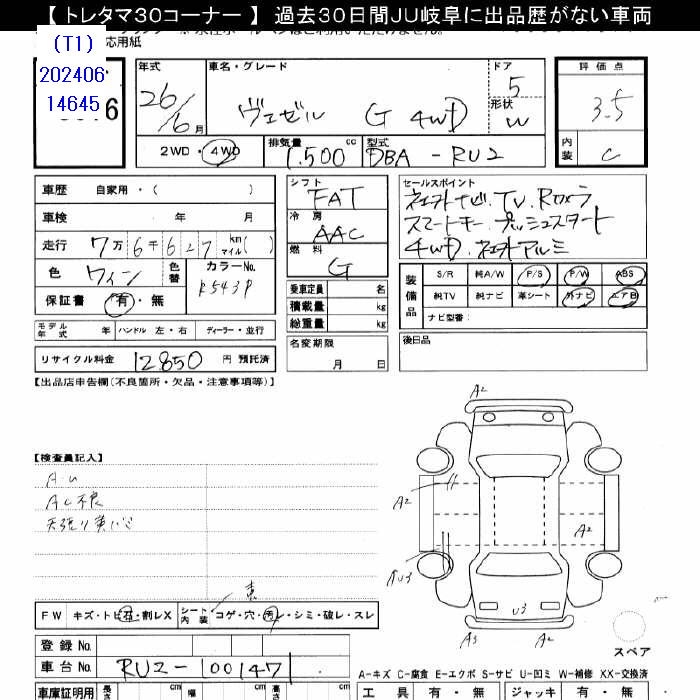 【 トレタマ30コーナー 】 過去30日間JU岐阜に出品歴がない車両
応用紙
(T1)
202406
14645
6
年式
26/6月
車名・グレード
ヴェゼル G 4WD
ドア
5
形状
W
評価点
3.5
内装
C
2WD・4WD
排気量
1,500 cc
型式
DBA-RU2
車歴 自家用・( )
車検 年 月
走行 7万6千627 km マイル( )
色 ワイン
色替
カラーNo.
R543P
保証書 有・無
モデル年式 年
ハンドル 左・右
ディーラー・並行
リサイクル料金 12,850 円 預託済
シフト
FAT
冷房
AAC
燃料
G
乗車定員 名
積載量 kg
総重量 kg
名変期限
月 日
セールスポイント
ネェカトナビ.TV.Rカメラ
スマートキー.プッシュスタート
4WD.ネェカトアルミ
装備品
S/R 純A/W P/S P/W ABS
純TV 純ナビ 革シート 外ナビ エアB
ナビ型番:
後日品
【出品店申告欄(不良箇所・欠品・注意事項等)】
【検査員記入】
AU
AC不良
天張り
FW キズ・トビ石・割レX
シート内装 コゲ・穴・汚レ・シミ・破レ・スレ
登録 No.
車台 No. RU2-100147
車庫証明用
長さ
cm
幅
cm
cm
A2
A2
A2
U3
U3
A3
A2
スペア
A-キズ C-腐食 E-エクボ S-サビ U-凹ミ W-補修 XX-交換済
工具 有・無
ジャッキ 有・無